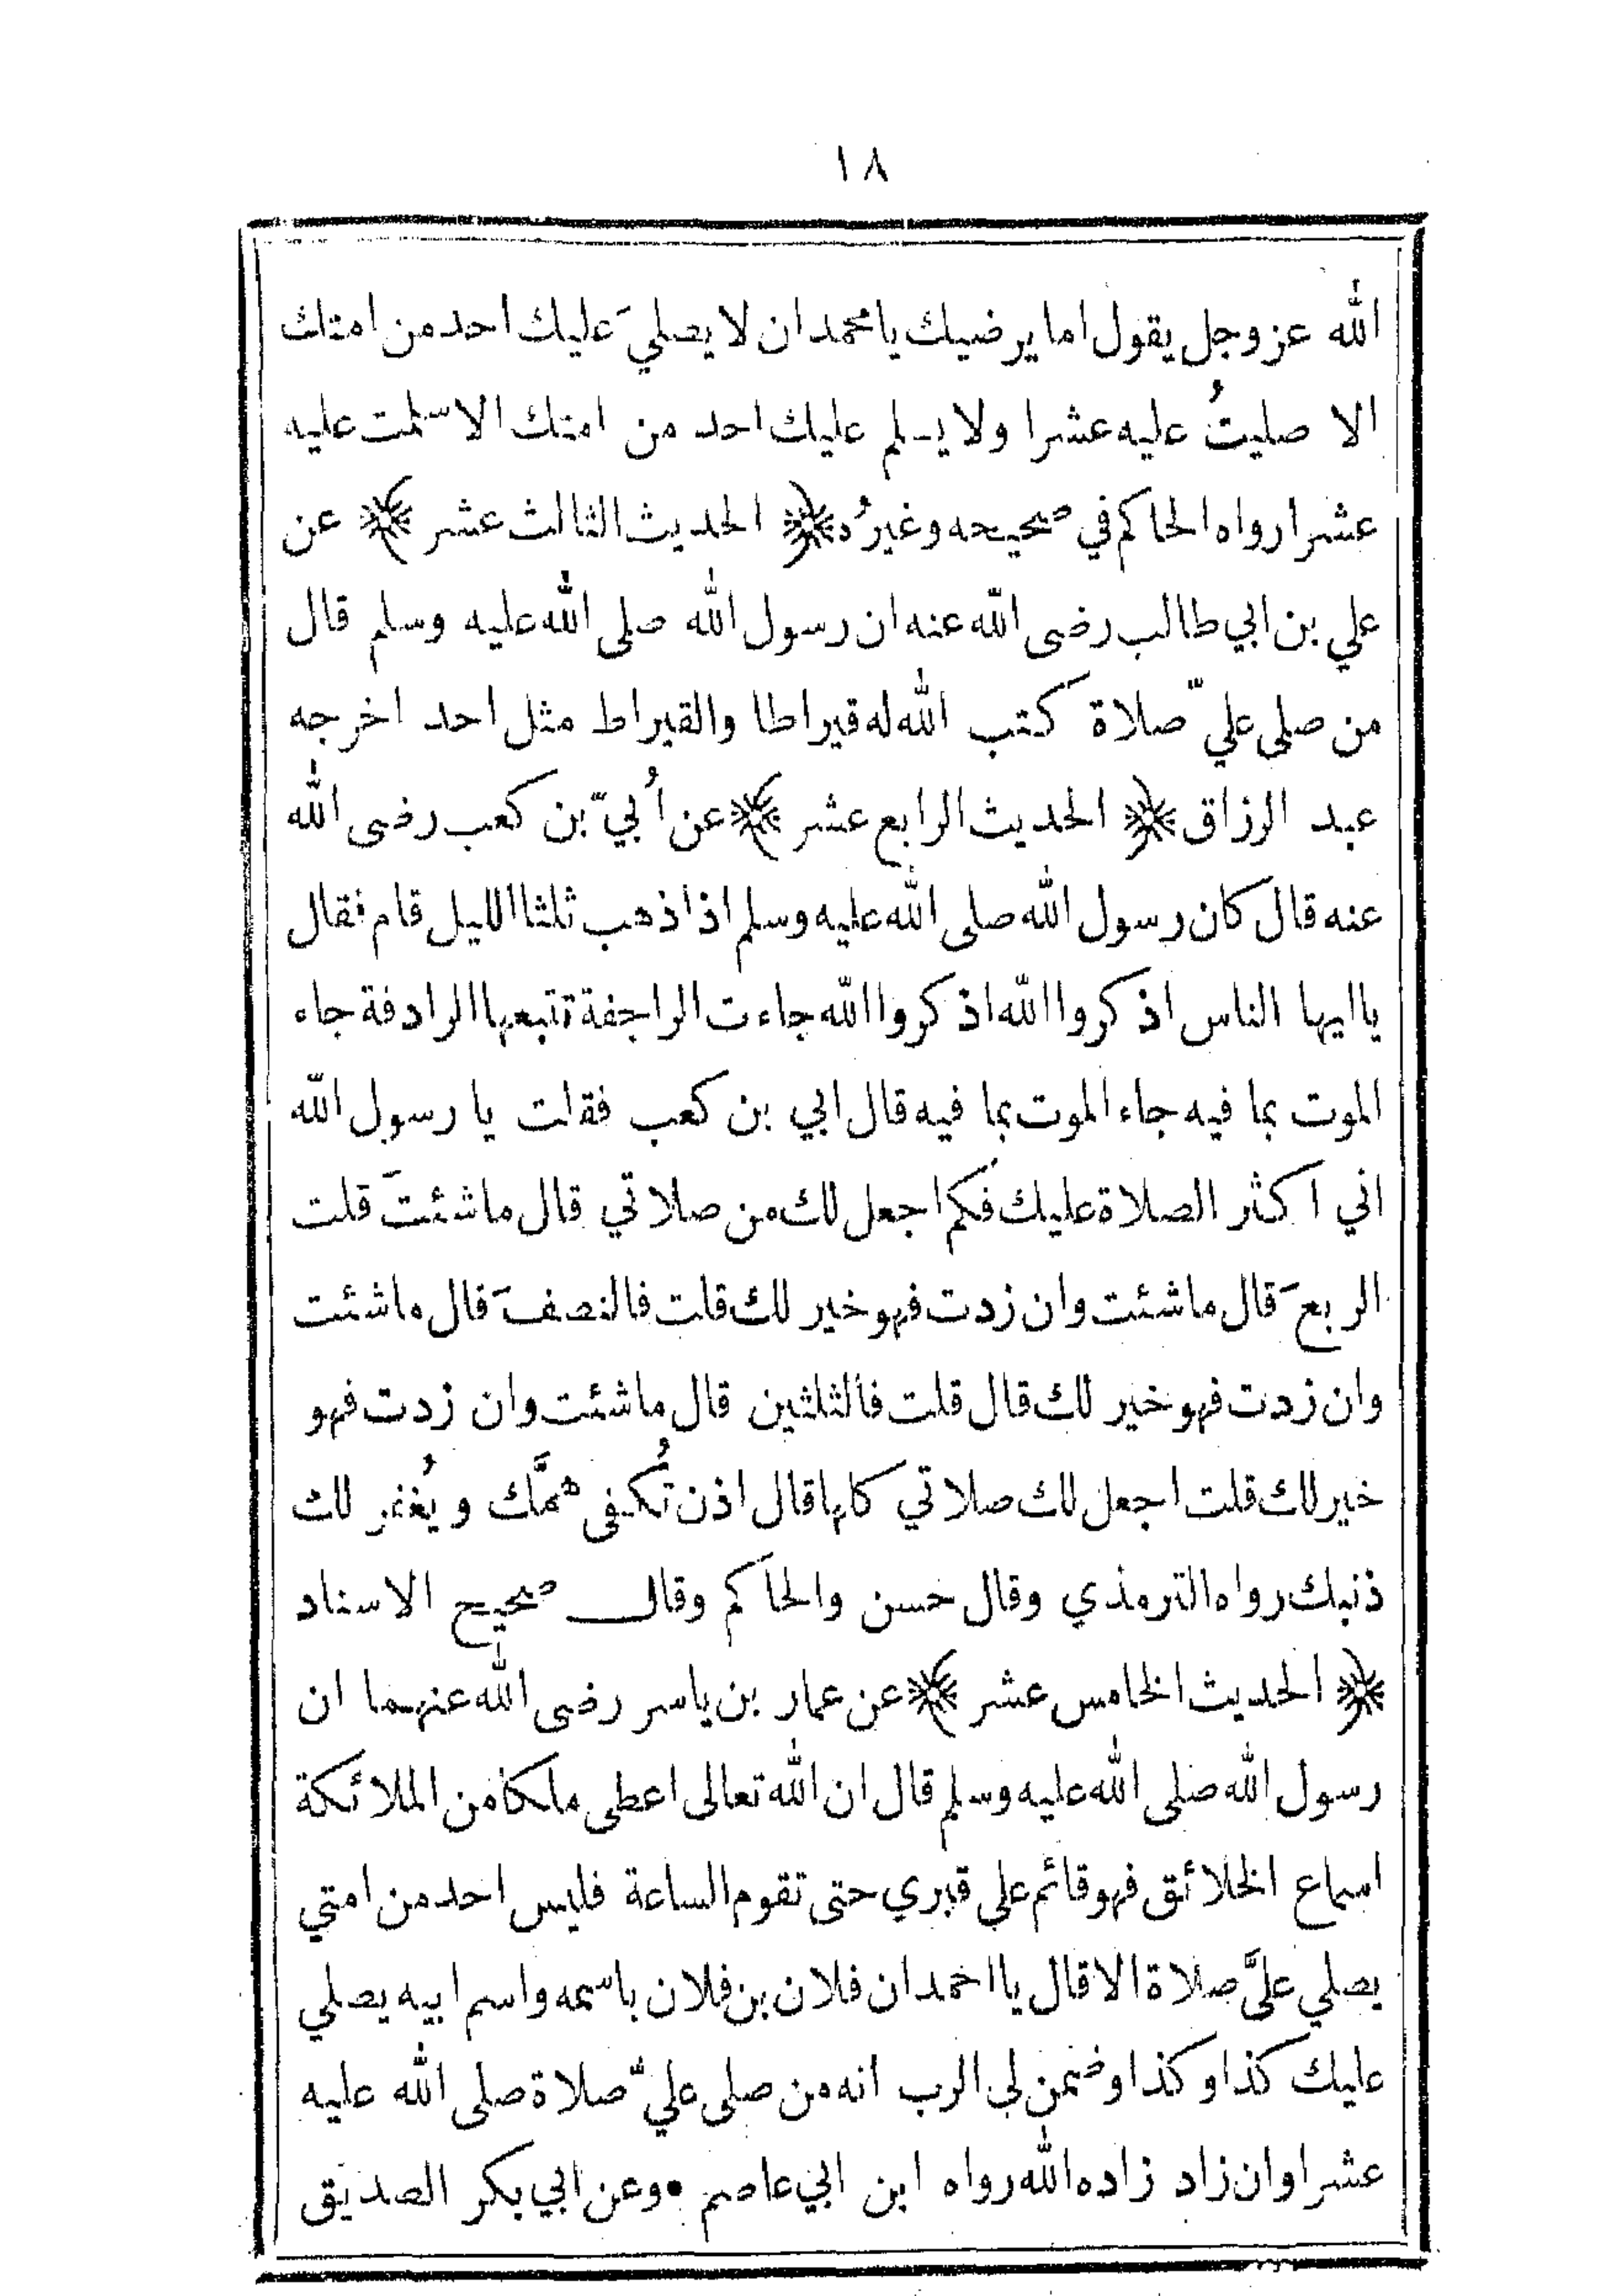 ١٨
الله عز وجل يقول اما يرضيك يا محمد ان لا يصليَ عليك احد من امتك
الا صليتُ عليه عشرا ولا يسلم عليك احد من امتك الا سلمت عليه
عشرا رواه الحاكم في صحيحه وغيرُه ﴿ الحديث الثالث عشر ﴾ عن
علي بن ابي طالب رضى الله عنه ان رسول الله صلى الله عليه وسلم قال
من صلى عليّ صلاة كتب الله له قيراطا والقيراط مثل احد اخرجه
عبد الرزاق ﴿ الحديث الرابع عشر ﴾ عن أُبيّ بن كعب رضى الله
عنه قال كان رسول الله صلى الله عليه وسلم اذا ذهب ثلثا الليل قام فقال
يا ايها الناس اذكروا الله اذكروا الله جاءت الراجفة تتبعها الرادفة جاء
الموت بما فيه جاء الموت بما فيه قال ابي بن كعب فقلت يا رسول الله
اني اكثر الصلاة عليك فكم اجعل لك من صلاتي قال ما شئتَ قلت
الربعَ قال ما شئت وان زدت فهو خير لك قلت فالنصفَ قال ما شئت
وان زدت فهو خير لك قال قلت فالثلثين قال ما شئت وان زدت فهو
خير لك قلت اجعل لك صلاتي كلها قال اذن تُكفى همَّك ويُغفر لك
ذنبك رواه الترمذي وقال حسن والحاكم وقال صحيح الاسناد
﴿ الحديث الخامس عشر ﴾ عن عمار بن ياسر رضى الله عنهما ان
رسول الله صلى الله عليه وسلم قال ان الله تعالى اعطى ملكا من الملائكة
اسماع الخلائق فهو قائم على قبري حتى تقوم الساعة فليس احد من امتي
يصلي عليَّ صلاة الا قال يا احمد ان فلان بن فلان باسمه واسم ابيه يصلي
عليك كذا وكذا وضمن لى الرب انه من صلى عليّ صلاة صلى الله عليه
عشرا وان زاد زاده الله رواه ابن ابي عاصم • وعن ابي بكر الصديق